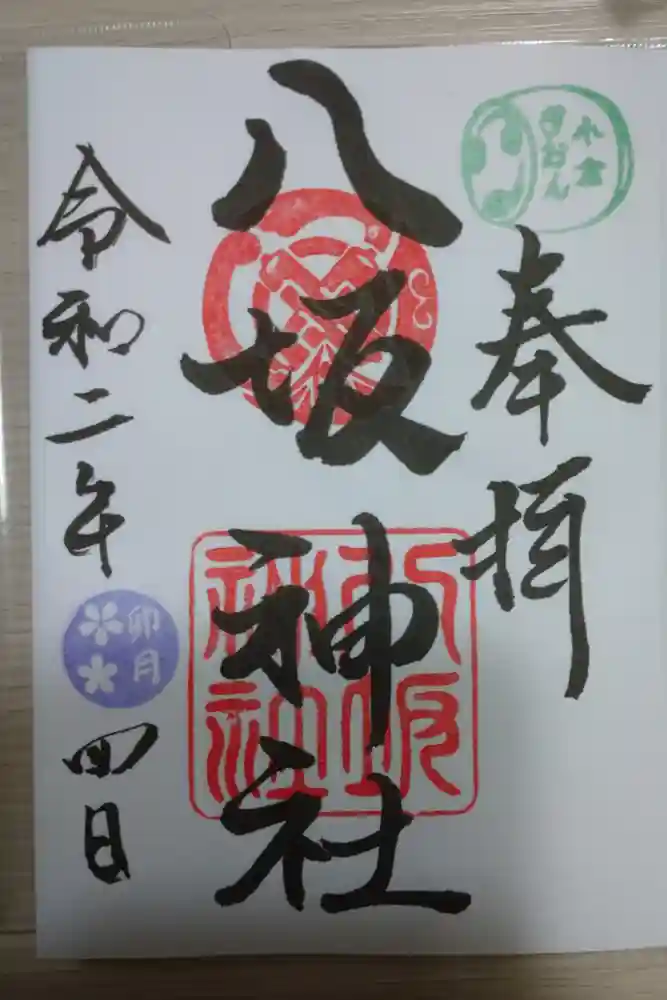 奉拝
八坂神社
八坂
神社
令和二年
卯月
四日